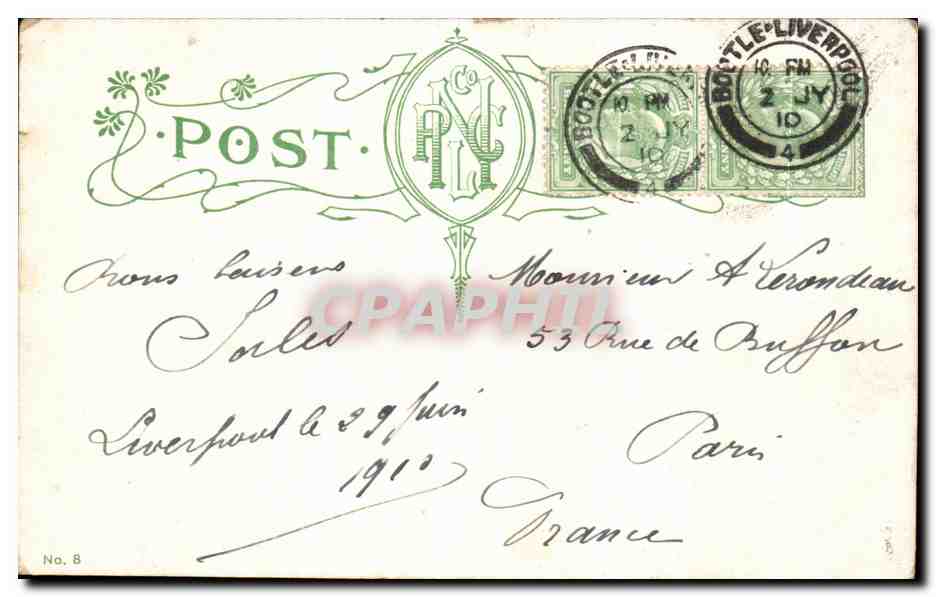 POST
BOOTLE·LIVERPOOL
10. PM
2 JY
10
4
BOOTLE·LIVERPOOL
10. PM
2 JY
10
4
Monsieur A Lerondeau
53 Rue de Buffon
Paris
France
Jules
Liverpool le 29 Juin
1910
CPAPHIL
No. 8